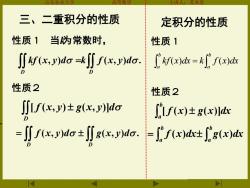 三、二重积分的性质
性质１ 当k为常数时,
∬_D kf(x,y)dσ = k∬_D f(x,y)dσ.
性质２
∬_D [f(x,y) ± g(x,y)]dσ
= ∬_D f(x,y)dσ ± ∬_D g(x,y)dσ.
定积分的性质
性质１
∫_a^b kf(x)dx = k∫_a^b f(x)dx
性质２
∫_a^b [f(x) ± g(x)]dx
= ∫_a^b f(x)dx ± ∫_a^b g(x)dx